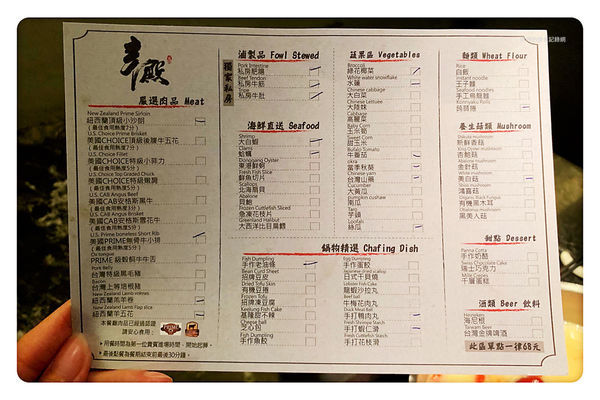 嚴選肉品 Meat
New Zealand Prime Sirloin
紐西蘭頂級小沙朗
(最佳食用熟度7分)
U.S. Choice Prime Brisket
美國CHOICE頂級後腰牛五花
(最佳食用熟度7分)
美國CHOICE特級小菲力
(最佳食用熟度5分)
U.S. Choice Top Graded Chuck
美國CHOICE特級嫩肩
(最佳食用熟度5分)
U.S. CAB Angus Beef
美國CAB安格斯黑牛
(最佳食用熟度5分)
U.S. CAB Angus Brisket
美國CAB安格斯雪花牛
(最佳食用熟度5分)
U.S. Prime boneless Short Rib
美國PRIME無骨牛小排
(最佳食用熟度5分)
Ox tongue
PRIME 級穀飼牛舌
Pork Belly
台灣特級黑毛豬
Bacon
台灣上等培根豬
紐西蘭羔羊卷
New Zealand Lamb Flap slice
紐西蘭羊五花
本餐廳肉品已經過認證
請安心食用:
用餐時間為第一位貴賓進場時間,開始起算。
最後點餐為餐期結束前最後30分鐘。
滷製品 Fowl Stewed
獨家私房
Pork Intestine
私房肥腸
Beef Tendon
私房牛筋
Tripe
私房牛肚
海鮮直送 Seafood
Shrimp
大白蝦
Clams
蛤蠣
Donggang Oyster
東港鮮蚵
Fresh Fish Slice
鮮魚切片
Scallops
北海扇貝
Abalone
貝鮑
Frozen Cuttlefish Sliced
急凍花枝片
Greenland Halibut
大西洋比目扁鱈
蔬果區 Vegetables
Broccoli
綠花椰菜
White water snowflake
水蓮
Chinese cabbage
大白菜
Chinese Lettuce
大陸妹
Cabbage
高麗菜
Baby Corn
玉米筍
Sweet Corn
甜玉米
Bufalo Tomato
牛番茄
okra
當季秋葵
Chinese yam
台灣山藥
Cucumber
大黃瓜
Pumpkin
南瓜
Taro
芋頭
Loofah
絲瓜
鍋物精選 Chafing Dish
Fish Dumpling
手作老油條
Bean Curd Sheet
招牌豆皮
Dried Tofu Skin
有機豆捲
Frozen Tofu
招牌凍豆腐
Keelung Fish Cake
基隆甜不辣
Cheese ball
芝心包
Fish Dumpling
手作魚餃
Egg Dumpling
手作蛋餃
日式干貝燒
Lobster Fish Cake
龍蝦沙拉丸
Beef Ball
牛梅花肉丸
Duck Meat Ball
手打鴨肉丸
Fresh Shrimp Starch
手打蝦仁滑
Fresh Cuttlefish Starch
手打花枝滑
麵類 Wheat Flour
Rice
白飯
Instant noodle
王子麵
Seafood noodles
手工烏龍麵
Konnyaku Rolls
蒟蒻捲
養生菇類 Mushroom
Shiitake mushroom
新鮮香菇
King Oyster mushroom
杏鮑菇
Enoki mushroom
金針菇
White mushroom
美白菇
Shiro mushroom
鴻喜菇
Organic Black Fungus
有機黑木耳
mushroom
黑美人菇
甜點 Dessert
Panna Cotta
手作奶酪
Swiss Chocolate Cake
瑞士巧克力
Mille Crepes
千層蛋糕
酒類 Beer 飲料
Heineken
海尼根
Taiwan Beer
台灣金牌啤酒
此區單點一律68元